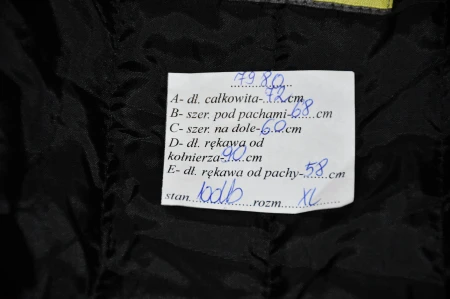 7980
A- dł. całkowita-72cm
B- szer. pod pachami-68cm
C- szer. na dole-60cm
D- dł. rękawa od
kołnierza-90cm
E- dł. rękawa od pachy-58cm
stan bdb rozm XL